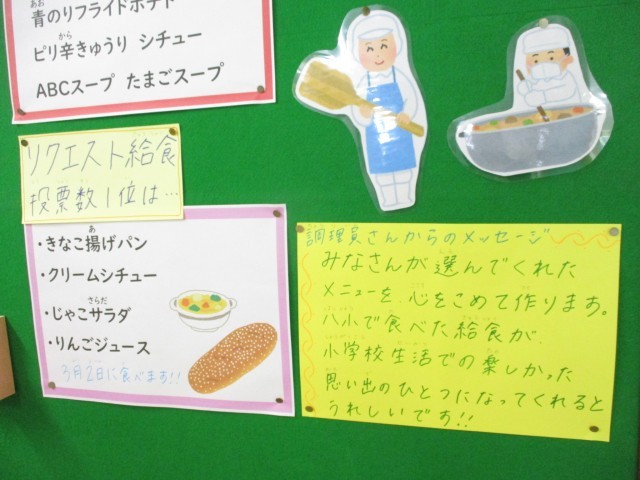 青のりフライドポテト
ピリ辛きゅうり シチュー
ABCスープ たまごスープ
リクエスト給食
投票数1位は…
・きなこ揚げパン
・クリームシチュー
・じゃこサラダ
・りんごジュース
3月2日に食べます!!
調理員さんからのメッセージ
みなさんが選んでくれた
メニューを、心をこめて作ります。
八小で食べた給食が、
小学校生活での楽しかった
思い出のひとつになってくれると
うれしいです!!